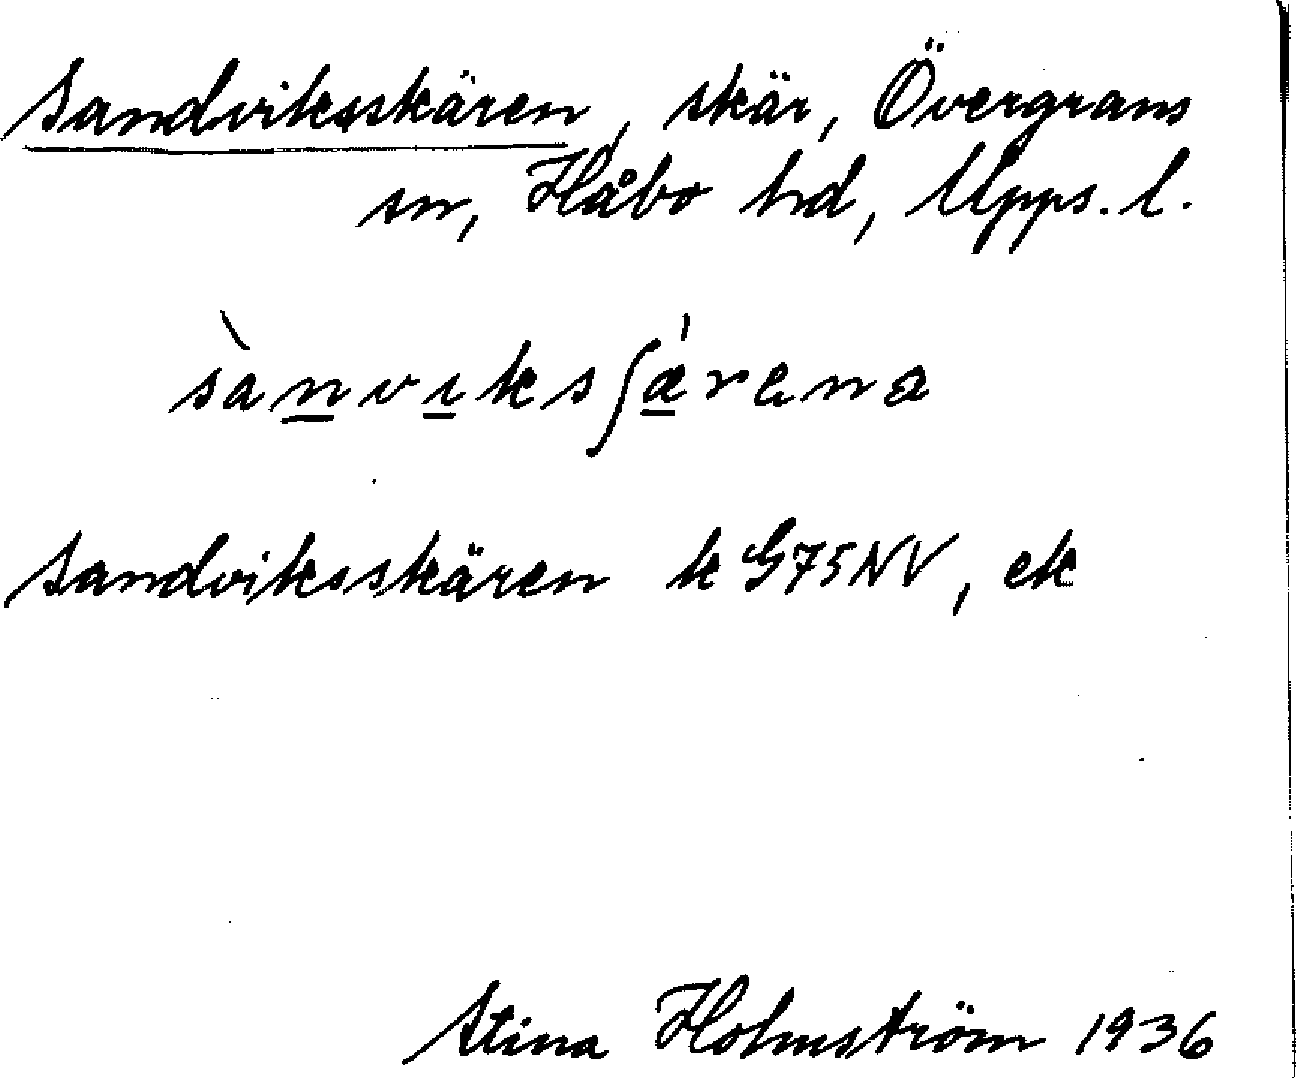 Sandviksskären, skär, Övergrans
sn, Håbo hd, Upps. l.
sànviksʃǽrena
Sandviksskären k G75NV, ek
Stina Holmström 1936